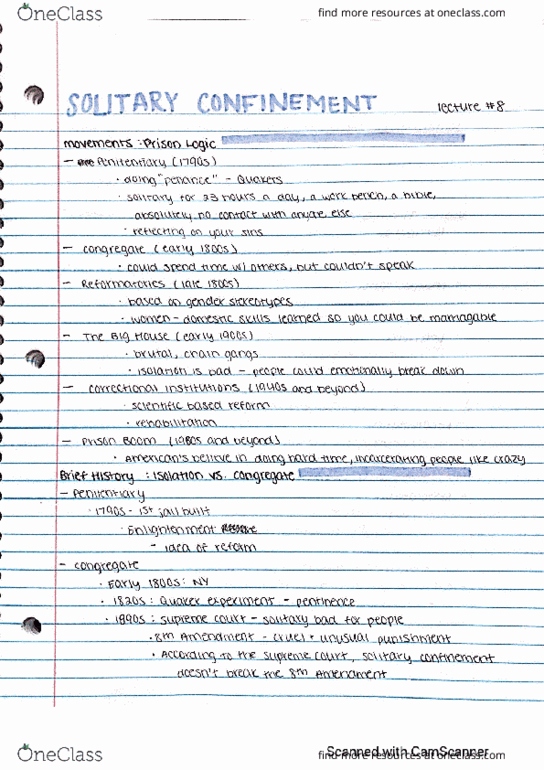 OneClass
find more resources at oneclass.com
SOLITARY CONFINEMENT
lecture #8
movements : Prison Logic
- Penitentiary (1790s)
• doing "penance" - Quakers
• solitary for 23 hours a day, a work bench, a bible,
absolutely no contact with anyone else
• reflecting on your sins
- congregate (early 1800s)
• could spend time w/ others, but couldn't speak
- Reformatories (late 1800s)
• based on gender stereotypes
• women - domestic skills learned so you could be marriagable
- The Big House (early 1900s)
• brutal, chain gangs
• isolation is bad - people could emotionally break down
- correctional institutions (1940s and beyond)
• scientific based reform
• rehabilitation
- Prison Boom (1980s and beyond)
• american's believe in doing hard time, incarcerating people like crazy
Brief History : isolation vs. congregate
- Penitentiary
• 1790s - 1st jail built
• Enlightenment
- idea of reform
- congregate
• Early 1800s: NY
• 1820s : Quaker experiment - pentinence
• 1890s : supreme court - solitary bad for people
• 8th Amendment - cruel + unusual punishment
• According to the supreme court, solitary confinement
doesn't break the 8th Amendment
Scanned with CamScanner
OneClass
find more resources at oneclass.com